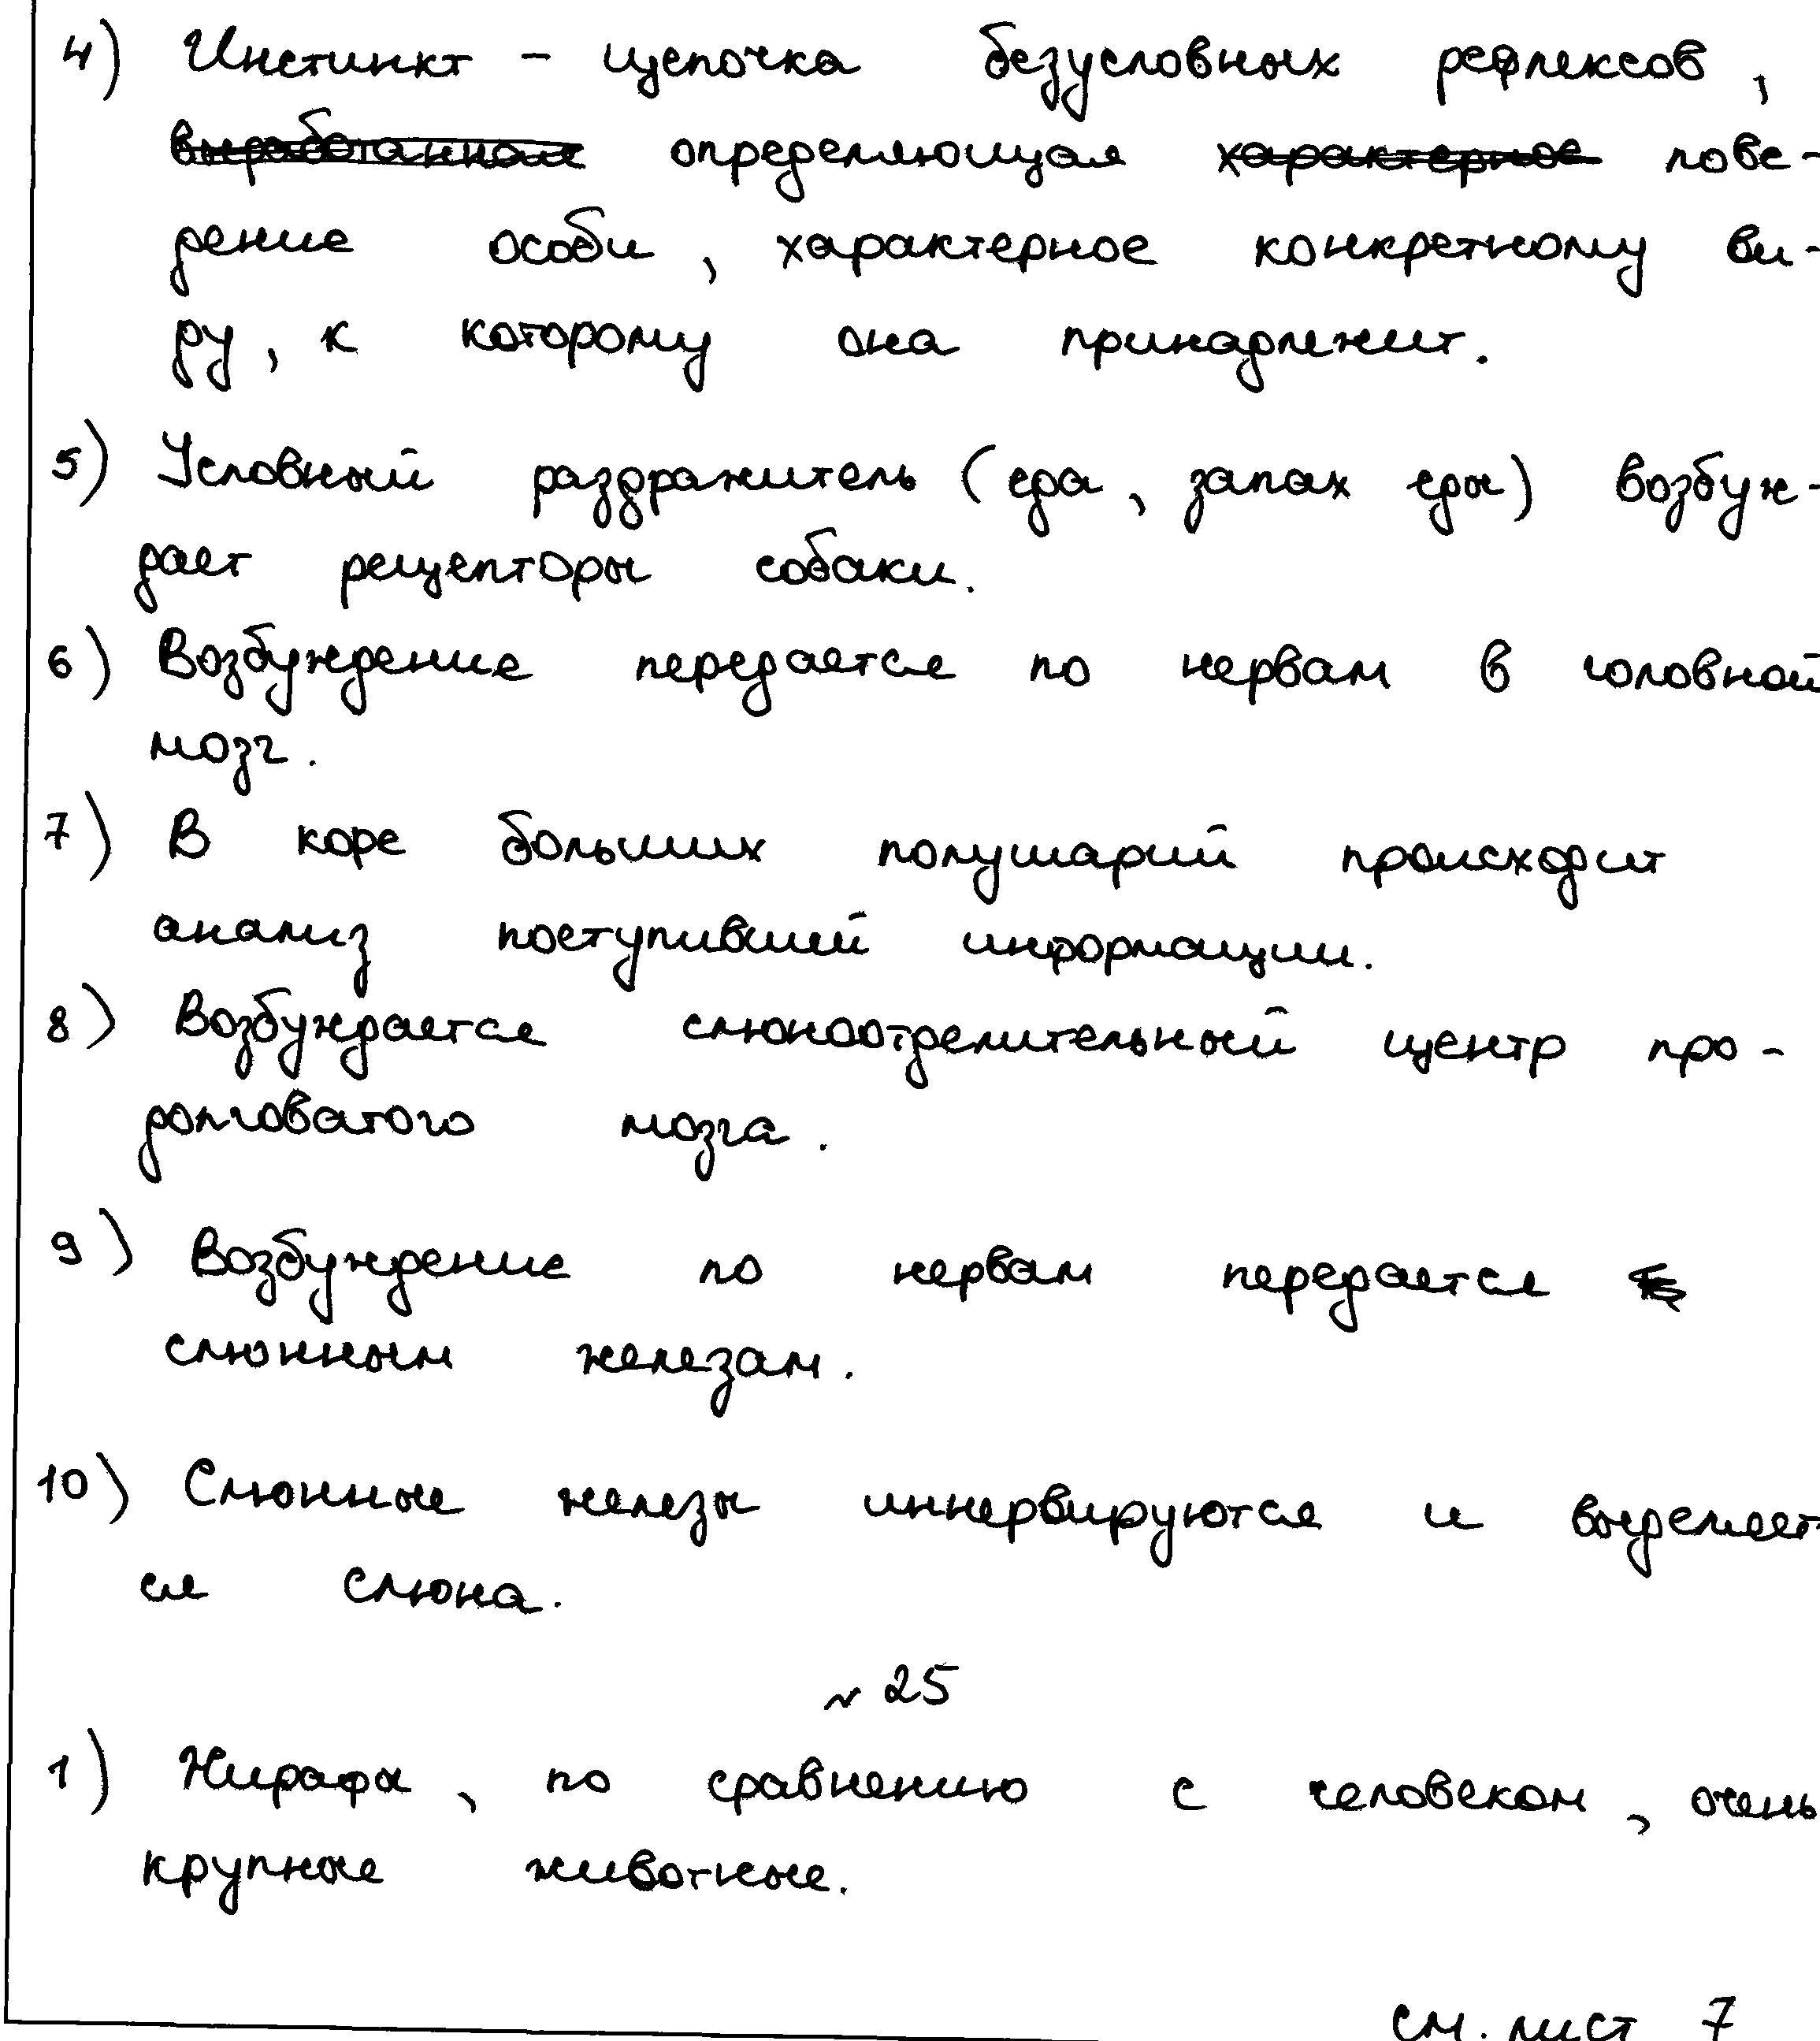 4) Инстинкт - цепочка безусловных рефлексов,
выработанная определяющая характерное пове-
дение особи, характерное конкретному ви-
ду, к которому она принадлежит.
5) Условный раздражитель (еда, запах еды) возбуж-
дает рецепторы собаки.
6) Возбуждение передается по нервам в головной
мозг.
7) В коре больших полушарий происходит
анализ поступившей информации.
8) Возбуждается слюноотделительный центр про-
долговатого мозга.
9) Возбуждение по нервам передается
слюнным железам.
10) Слюнные железы иннервируются и выделяет
ся слюна.
~ 25
1) Жирафы, по сравнению с человеком, очень
крупные животные.
см. лист 7